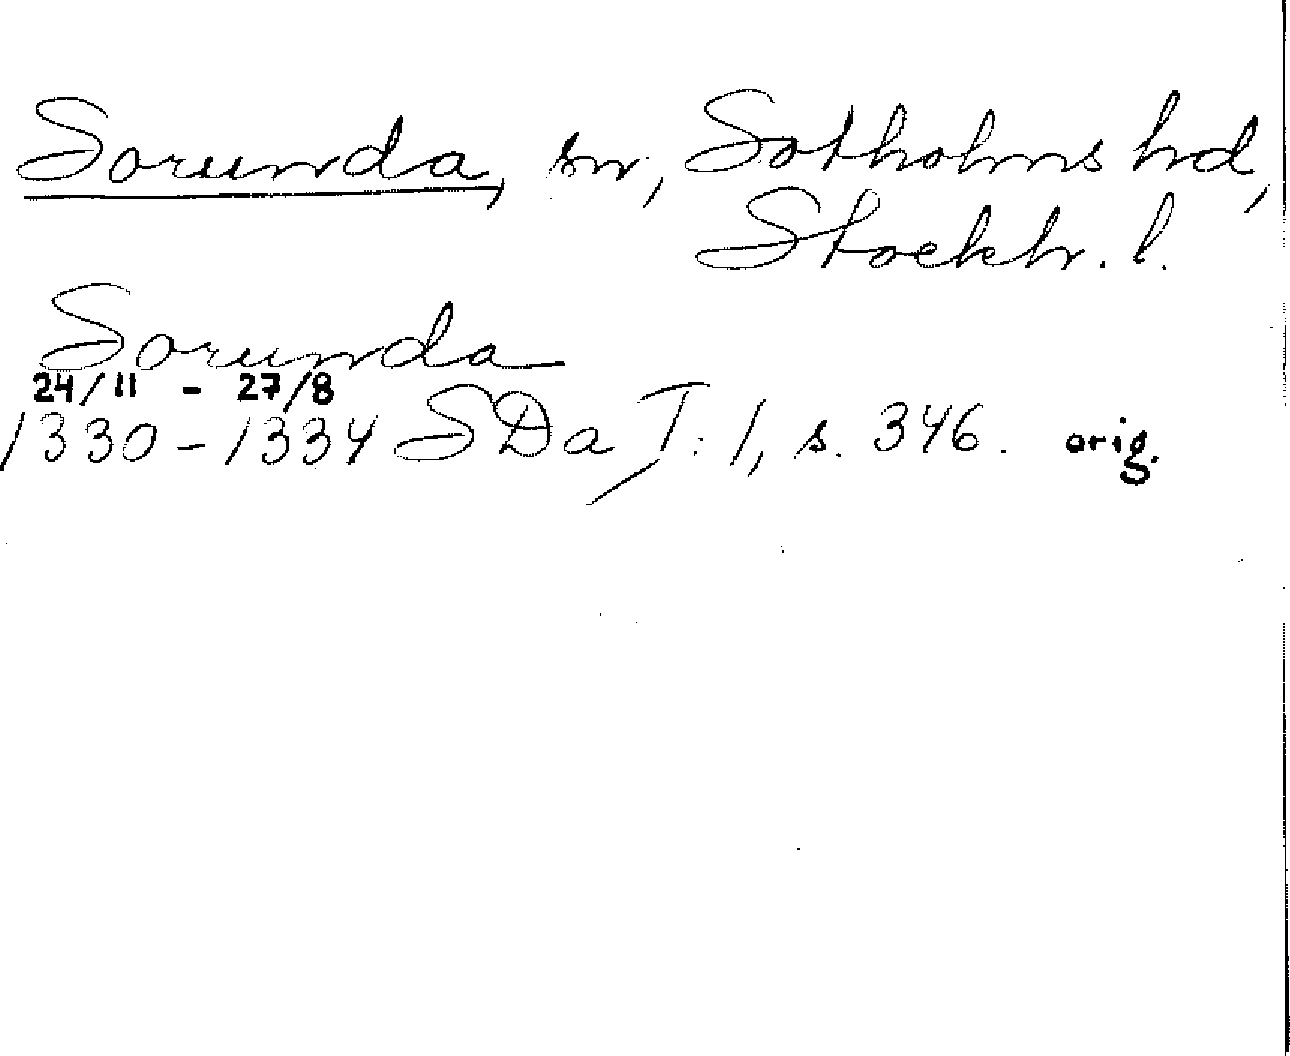 Sorunda, sn, Sotholms hd,
Stockh. l.
Sorunda
24/11 - 27/8
1330-1334 SDa T. 1, s. 346. orig.